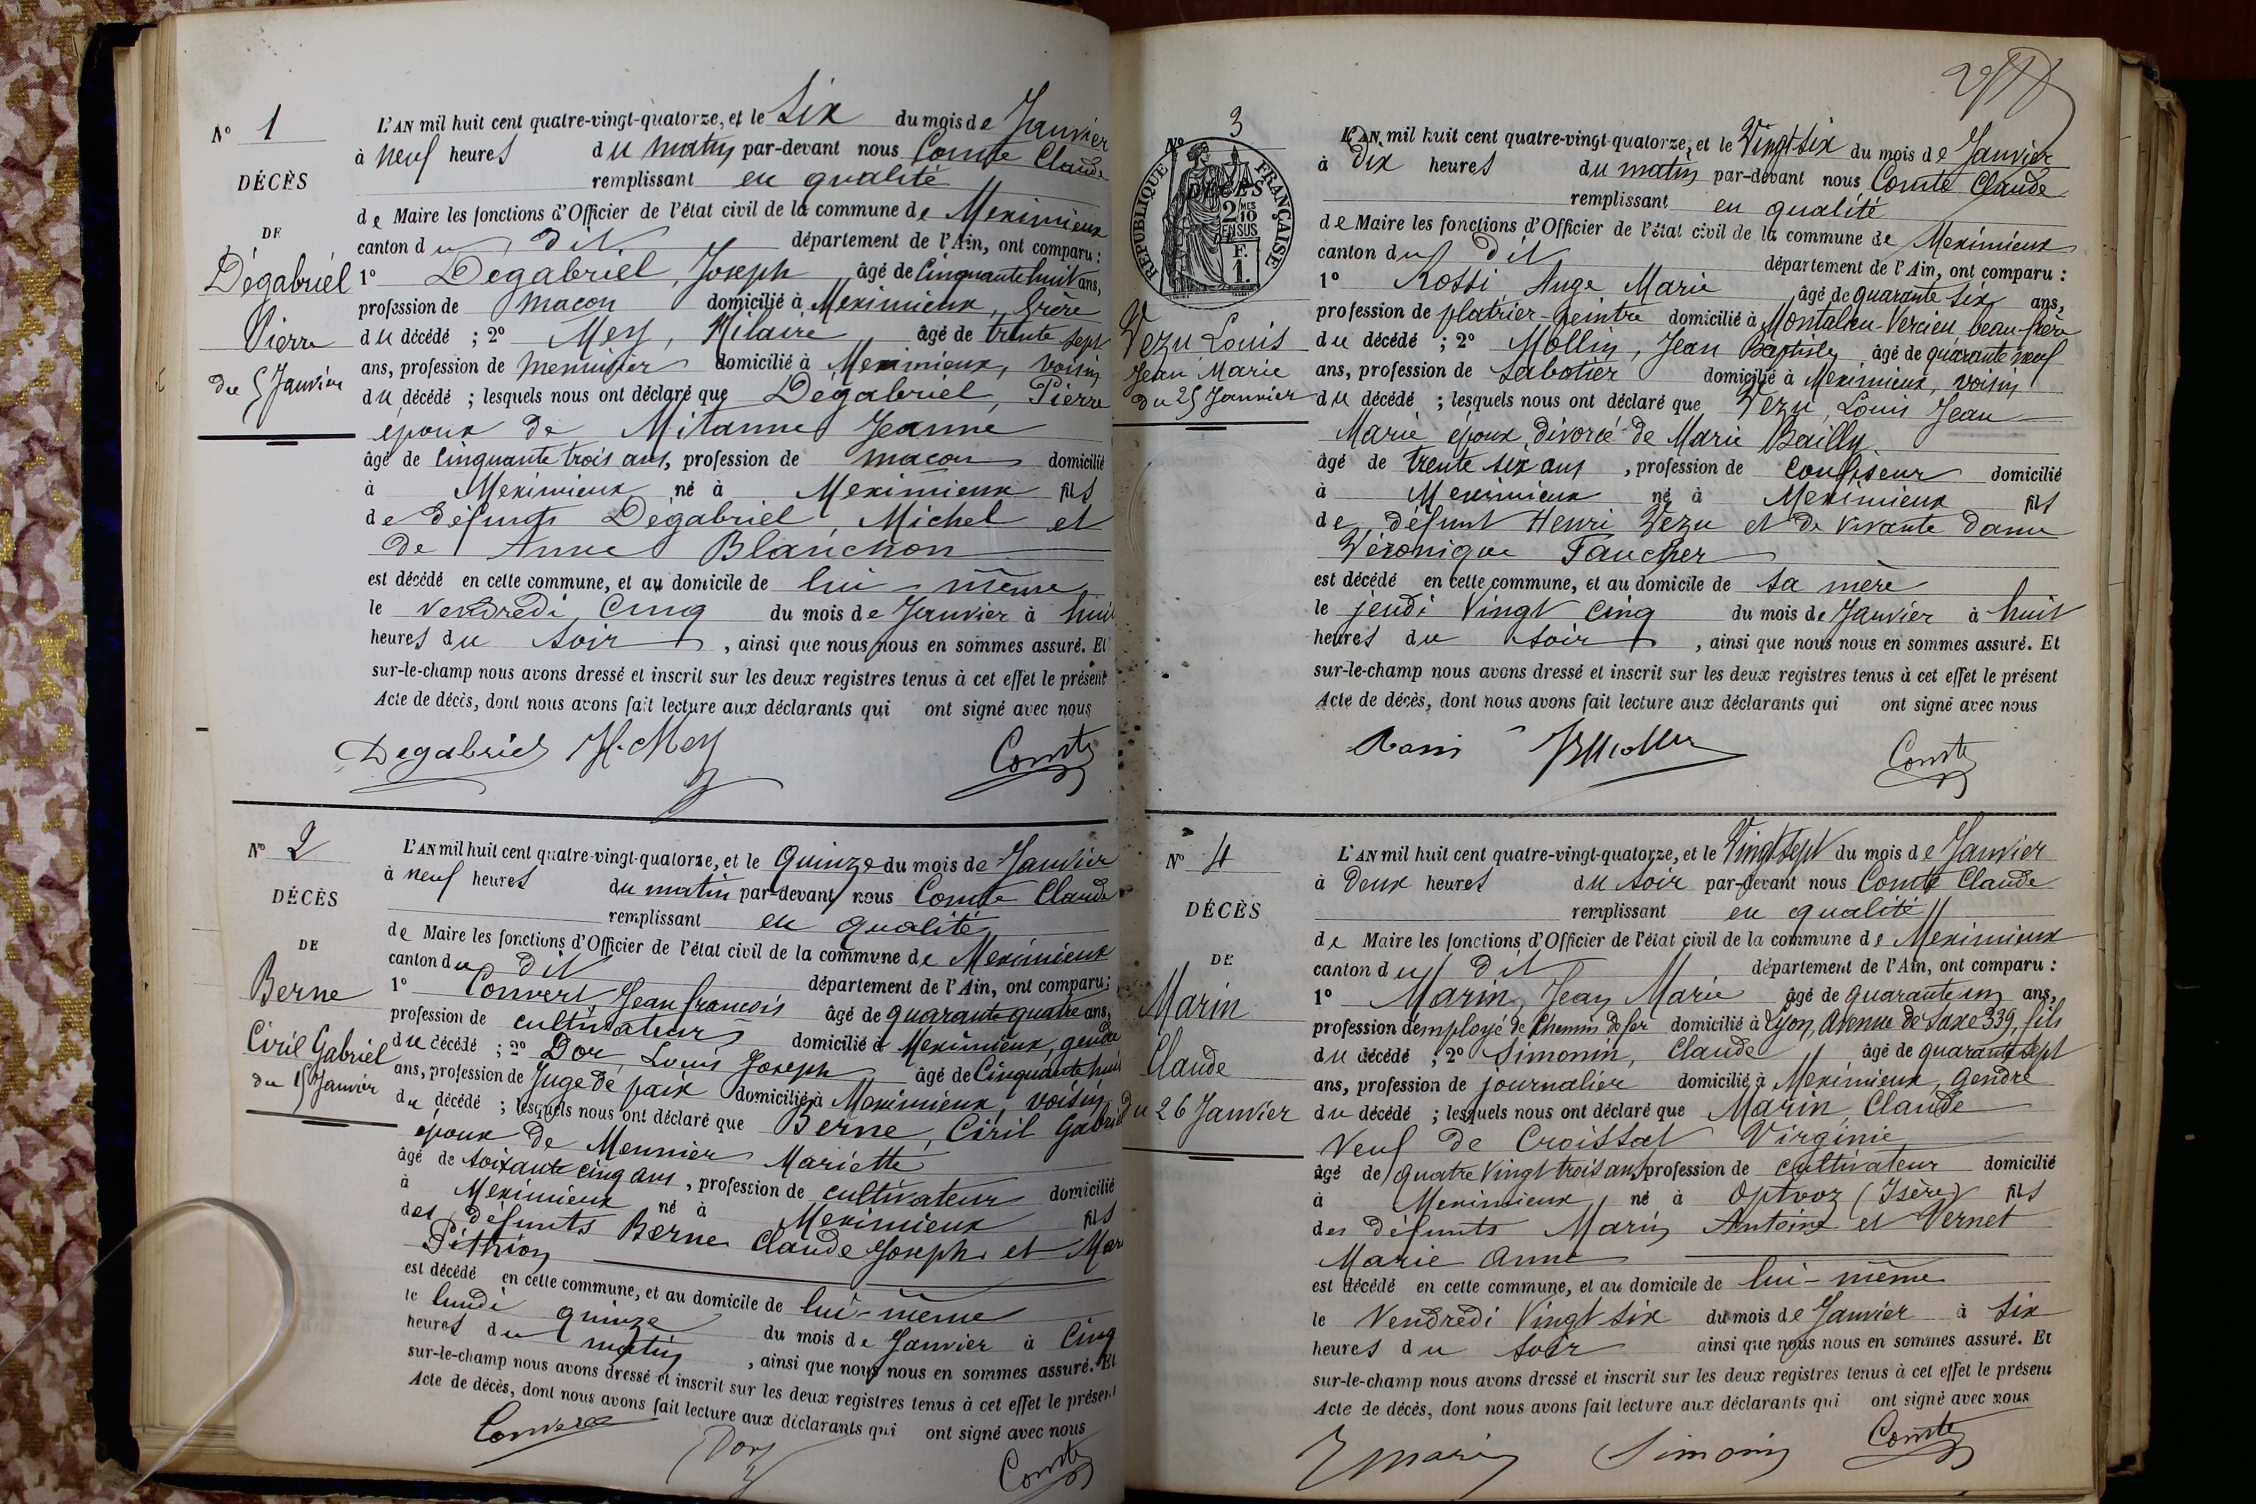 No 1
DÉCÈS
DE
Dégabriel
Pierre
du 5 Janvier
L'AN mil huit cent quatre-vingt-quatorze, et le Six du mois de Janvier
à neuf heures du matin par-devant nous Comte Claude
remplissant en qualité
de Maire les fonctions d'Officier de l'état civil de la commune de Meximieux
canton du dit département de l'Ain, ont comparu :
1o Dégabriel, Joseph âgé de Cinquante huit ans,
profession de macon domicilié à Meximieux, frère
du décédé ; 2o Mey, Hilaire âgé de trente sept
ans, profession de menuisier domicilié à Meximieux, voisin
du décédé ; lesquels nous ont déclaré que Dégabriel, Pierre
époux de Milanne Jeanne
âgé de Cinquante trois ans, profession de macon domicilié
à Meximieux né à Meximieux fils
de défunts Dégabriel, Michel et
de Anne Blanchon
est décédé en cette commune, et au domicile de lui-même
le vendredi cinq du mois de Janvier à huit
heures du soir, ainsi que nous nous en sommes assuré. Et
sur-le-champ nous avons dressé et inscrit sur les deux registres tenus à cet effet le présent
Acte de décès, dont nous avons fait lecture aux déclarants qui ont signé avec nous
Degabriel H. Mey Comte
No 2
DÉCÈS
DE
Berne
Ciril Gabriel
du 15 Janvier
L'AN mil huit cent quatre-vingt-quatorze, et le Quinze du mois de Janvier
à neuf heures du matin par-devant nous Comte Claude
remplissant en qualité
de Maire les fonctions d'Officier de l'état civil de la commune de Meximieux
canton du dit département de l'Ain, ont comparu :
1o Convert, Jean françois âgé de quarante quatre ans,
profession de cultivateur domicilié à Meximieux, gendre
du décédé ; 2o Dor, Louis Joseph âgé de Cinquante huit
ans, profession de Juge de paix domicilié à Meximieux, voisin
du décédé ; lesquels nous ont déclaré que Berne, Ciril Gabriel
époux de Meunier Mariette
âgé de soixante cinq ans, profession de cultivateur domicilié
à Meximieux né à Meximieux fils
des défunts Berne Claude Joseph et
Péthion
est décédé en cette commune, et au domicile de lui-même
le lundi quinze du mois de Janvier à Cinq
heures du matin, ainsi que nous nous en sommes assuré. Et
sur-le-champ nous avons dressé et inscrit sur les deux registres tenus à cet effet le présent
Acte de décès, dont nous avons fait lecture aux déclarants qui ont signé avec nous
Convert Dor Comte
No 3
DÉCÈS
RÉPUBLIQUE FRANÇAISE
2 MES 10 EN SUS
1 F.
Vezu Louis
Jean Marie
du 25 Janvier
L'AN mil huit cent quatre-vingt-quatorze, et le Vingt six du mois de Janvier
à Dix heures du matin par-devant nous Comte Claude
remplissant en qualité
de Maire les fonctions d'Officier de l'état civil de la commune de Meximieux
canton du dit département de l'Ain, ont comparu :
1o Rossi Ange Marie âgé de quarante six ans,
profession de platrier-peintre domicilié à Montalieu-Vercieu beau-frère
du décédé ; 2o Mollin, Jean Baptiste âgé de quarante neuf
ans, profession de sabotier domicilié à Meximieux, voisin
du décédé ; lesquels nous ont déclaré que Vezu, Louis Jean
Marie époux divorcé de Marie Bailly
âgé de trente six ans, profession de confiseur domicilié
à Meximieux né à Meximieux fils
de défunt Henri Vezu et de vivante dame
Véronique Faucher
est décédé en cette commune, et au domicile de sa mère
le jeudi Vingt cinq du mois de Janvier à huit
heures du soir, ainsi que nous nous en sommes assuré. Et
sur-le-champ nous avons dressé et inscrit sur les deux registres tenus à cet effet le présent
Acte de décès, dont nous avons fait lecture aux déclarants qui ont signé avec nous
Rossi JBMollin Comte
No 4
DÉCÈS
DE
Marin
Claude
du 26 Janvier
L'AN mil huit cent quatre-vingt-quatorze, et le Vingt sept du mois de Janvier
à Deux heures du soir par-devant nous Comte Claude
remplissant en qualité
de Maire les fonctions d'Officier de l'état civil de la commune de Meximieux
canton du dit département de l'Ain, ont comparu :
1o Marin, Jean Marie âgé de quarante un ans,
profession d'employé de Chemin de fer domicilié à Lyon, Avenue de Saxe 339, fils
du décédé ; 2o Simonin, Claude âgé de quarante sept
ans, profession de journalier domicilié à Meximieux, gendre
du décédé ; lesquels nous ont déclaré que Marin, Claude
Veuf de Croissat Virginie
âgé de quatre vingt trois ans profession de cultivateur domicilié
à Meximieux né à Optevoz (Isère) fils
des défunts Marin Antoine et Vernet
Marie Anne
est décédé en cette commune, et au domicile de lui-même
le Vendredi Vingt six du mois de Janvier à six
heures du soir ainsi que nous nous en sommes assuré. Et
sur-le-champ nous avons dressé et inscrit sur les deux registres tenus à cet effet le présent
Acte de décès, dont nous avons fait lecture aux déclarants qui ont signé avec nous
Marin Simonin Comte